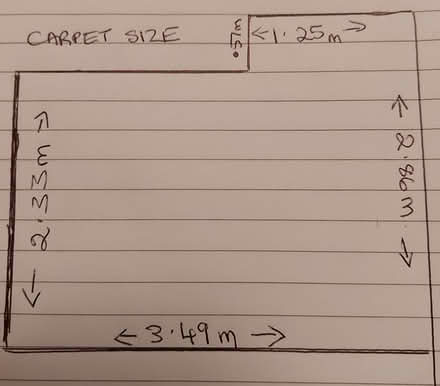 CARPET SIZE
.57m
1.25m
2.33m
2.86 m
3.49m